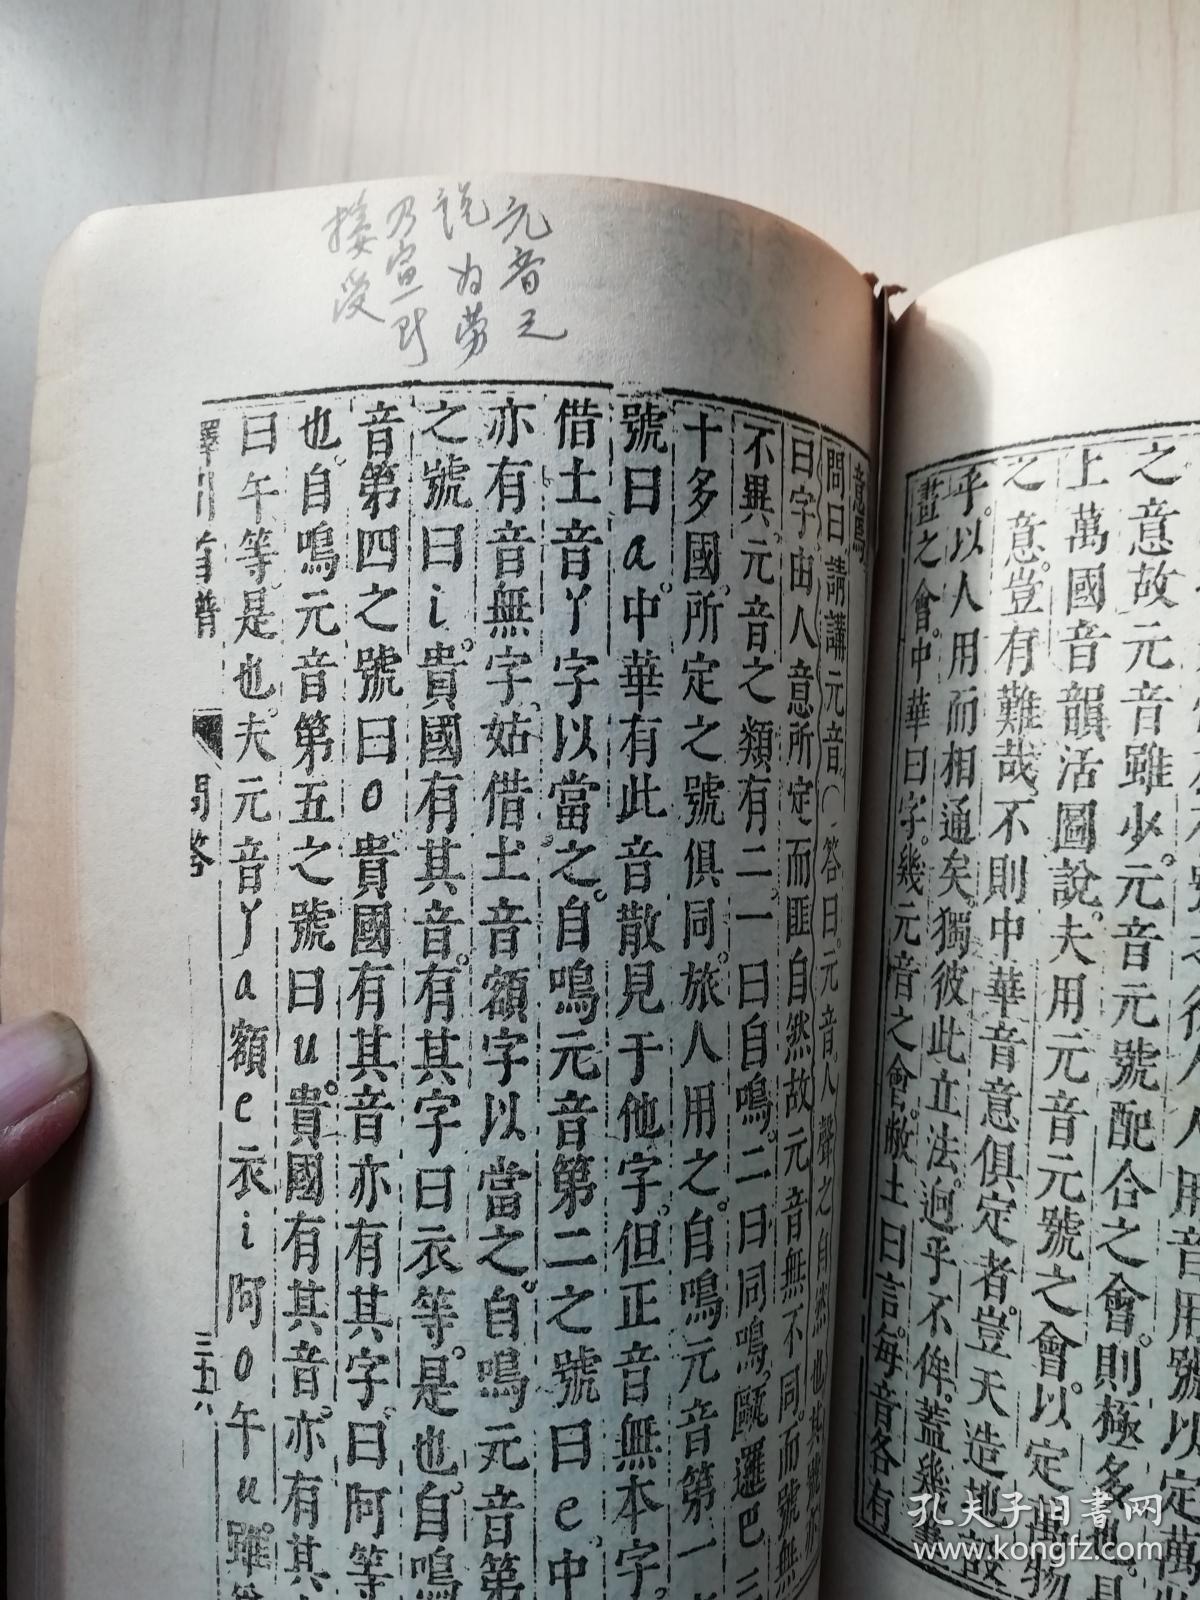 之意故元音雖少。元音元號配合之會。則極多
上萬國音韻活圖說。夫用元音元號之會。以定萬物
之意。豈有難哉。不則中華音意俱定者。豈天造地
乎。以人用而相通矣。獨彼此立法。迥乎不侔。蓋幾
畫之會。中華曰字。幾元音之會。敝土曰言。每音各有
意焉
問曰請講元音〇答曰。元音。人聲之自然也其號
曰字由人意所定而匪自然故元音無不同。而號無
不異。元音之類有二。一曰自鳴。二曰同鳴。歐邏巴三
十多國。所定之號俱同。旅人用之。自鳴元音第一
號曰a。中華有此音散見于他字。但正音無本字。
借土音丫字以當之。自鳴元音第二之號曰e。中
亦有音無字。姑借土音額字以當之。自鳴元音第
之號曰i。貴國有其音。有其字曰衣等。是也。自鳴
音第四之號曰o。貴國有其音亦有其字。曰阿等
也。自鳴元音第五之號曰u。貴國有其音。亦有其
曰午等。是也。夫元音丫a額e衣i阿o午u。雖
譯引首譜
問答
三五八
元音之
說为劳
乃宣所
接受
孔夫子旧書网
www.kongfz.com